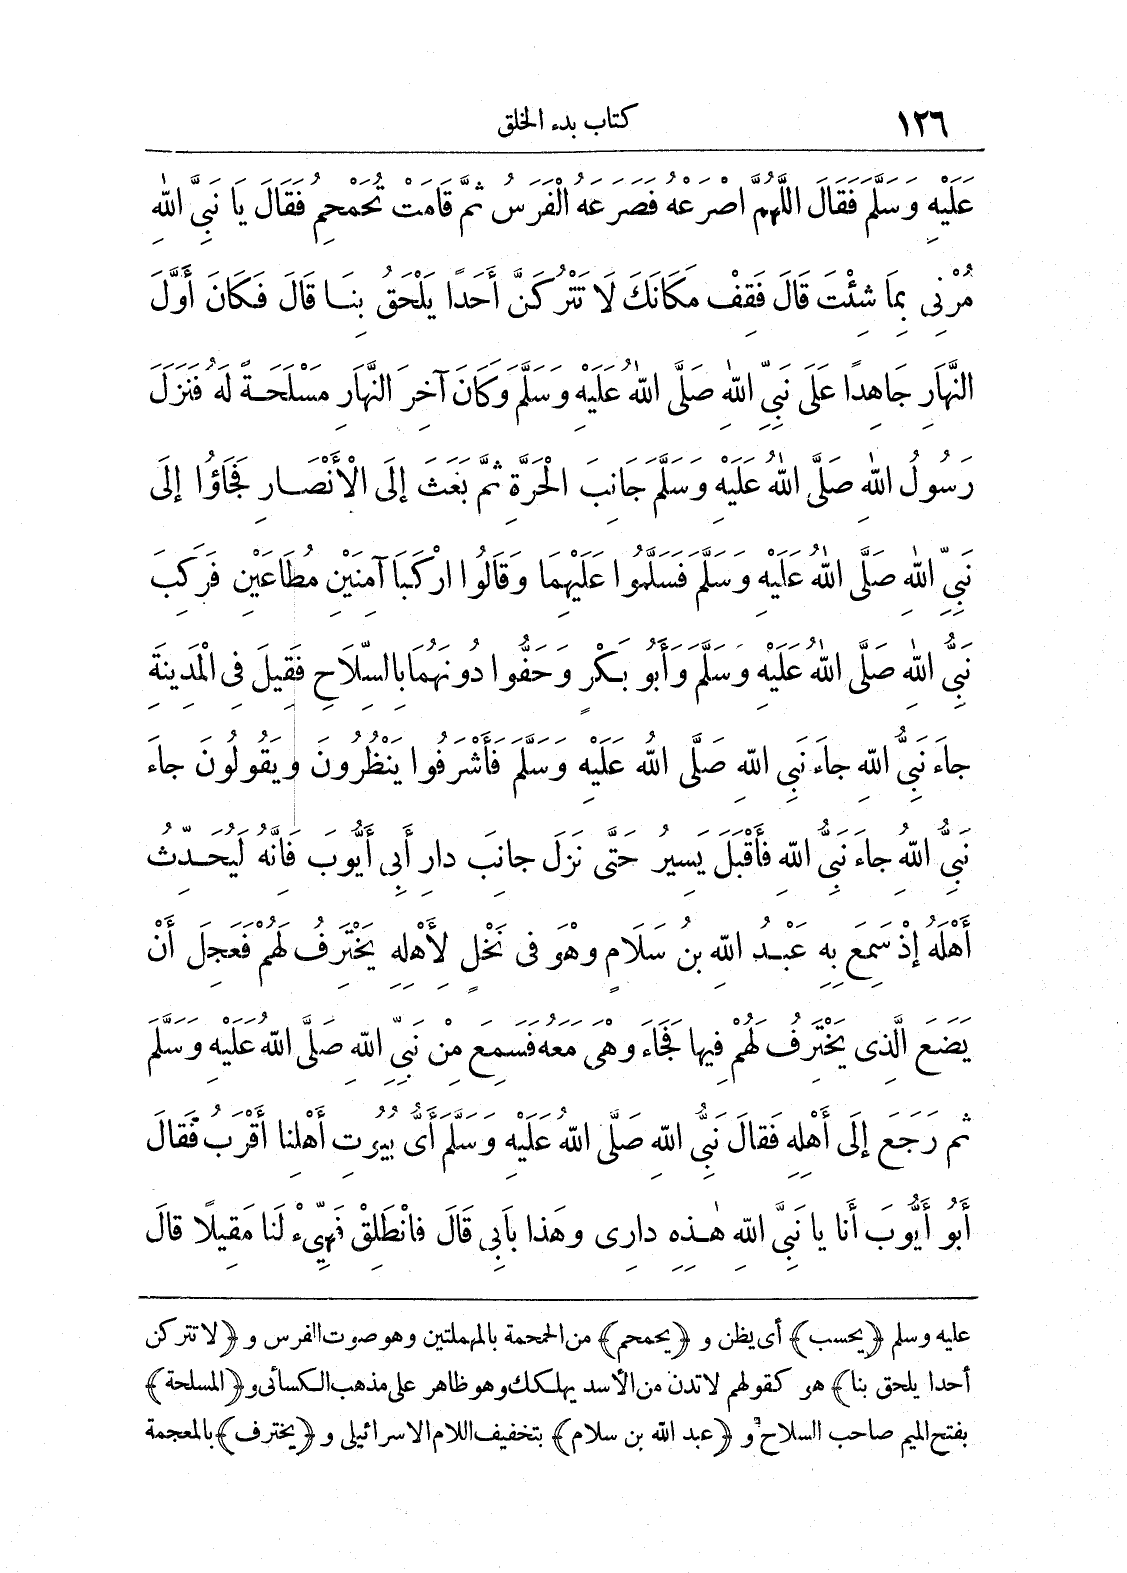 ١٢٦ كتاب بدء الخلق
عَلَيْهِ وَسَلَّمَ فَقَالَ اللَّهُمَّ اصْرَعْهُ فَصَرَعَهُ الْفَرَسُ ثُمَّ قَامَتْ تُحَمْحِمُ فَقَالَ يَا نَبِيَّ اللهِ
مُرْنِى بِمَا شِئْتَ قَالَ فَقِفْ مَكَانَكَ لَا تَتْرُكَنَّ أَحَدًا يَلْحَقُ بِنَا قَالَ فَكَانَ أَوَّلَ
النَّهَارِ جَاهِدًا عَلَى نَبِيِّ اللهِ صَلَّى اللهُ عَلَيْهِ وَسَلَّمَ وَكَانَ آخِرَ النَّهَارِ مَسْلَحَةً لَهُ فَنَزَلَ
رَسُولُ اللهِ صَلَّى اللهُ عَلَيْهِ وَسَلَّمَ جَانِبَ الْحَرَّةِ ثُمَّ بَعَثَ إِلَى الْأَنْصَارِ فَجَاؤُا إِلَى
نَبِيِّ اللهِ صَلَّى اللهُ عَلَيْهِ وَسَلَّمَ فَسَلَّمُوا عَلَيْهِمَا وَقَالُوا ارْكَبَا آمِنَيْنِ مُطَاعَيْنِ فَرَكِبَ
نَبِيُّ اللهِ صَلَّى اللهُ عَلَيْهِ وَسَلَّمَ وَأَبُو بَكْرٍ وَحَفُّوا دُونَهُمَا بِالسِّلَاحِ فَقِيلَ فِى الْمَدِينَةِ
جاءَ نَبِيُّ اللهِ جاءَ نَبِى اللهِ صَلَّى اللهُ عَلَيْهِ وَسَلَّمَ فَأَشْرَفُوا يَنْظُرُونَ وَيَقُولُونَ جاءَ
نَبِيُّ اللهِ جاءَ نَبِيُّ اللهِ فَأَقْبَلَ يَسِيرُ حَتَّى نَزَلَ جانِبَ دارِ أَبِى أَيُّوبَ فَانَّهُ لَيُحَدِّثُ
أَهْلَهُ إِذْ سَمِعَ بِهِ عَبْدُ اللهِ بنُ سَلَامٍ وهْوَ فى نَخْلٍ لِأَهْلِهِ يَخْتَرِفُ لَهُمْ فَعَجِلَ أَنْ
يَضَعَ الَّذِى يَخْتَرِفُ لَهُمْ فِيها فَجَاءَ وهْىَ مَعَهُ فَسَمِعَ مِنْ نَبِيِّ اللهِ صَلَّى اللهُ عَلَيْهِ وسَلَّمَ
ثم رَجَعَ إلَى أَهْلِهِ فَقالَ نَبِيُّ اللهِ صَلَّى اللهُ عَلَيْهِ وسَلَّمَ أَىُّ بُيُوتِ أَهْلِنا أَقْرَبُ فَقالَ
أَبُو أَيُّوبَ أَنا يا نَبِيَّ اللهِ هٰذِهِ دارِى وهَذا بابِى قَالَ فانْطَلِقْ فَهَيِّءْ لَنا مَقِيلًا قالَ
عليه وسلم ﴿يحسب﴾ أى يظن و ﴿يحمحم﴾ من الحمحمة بالمهملتين وهو صوت الفرس و ﴿لا تتركن
أحدا يلحق بنا﴾ هو كقولهم لاتدن من الأسد يهلكك وهو ظاهر على مذهب الكسائى و ﴿المسلحة﴾
بفتح الميم صاحب السلاح و ﴿عبد الله بن سلام﴾ بتخفيف اللام الاسرائيلى و ﴿يخترف﴾ بالمعجمة